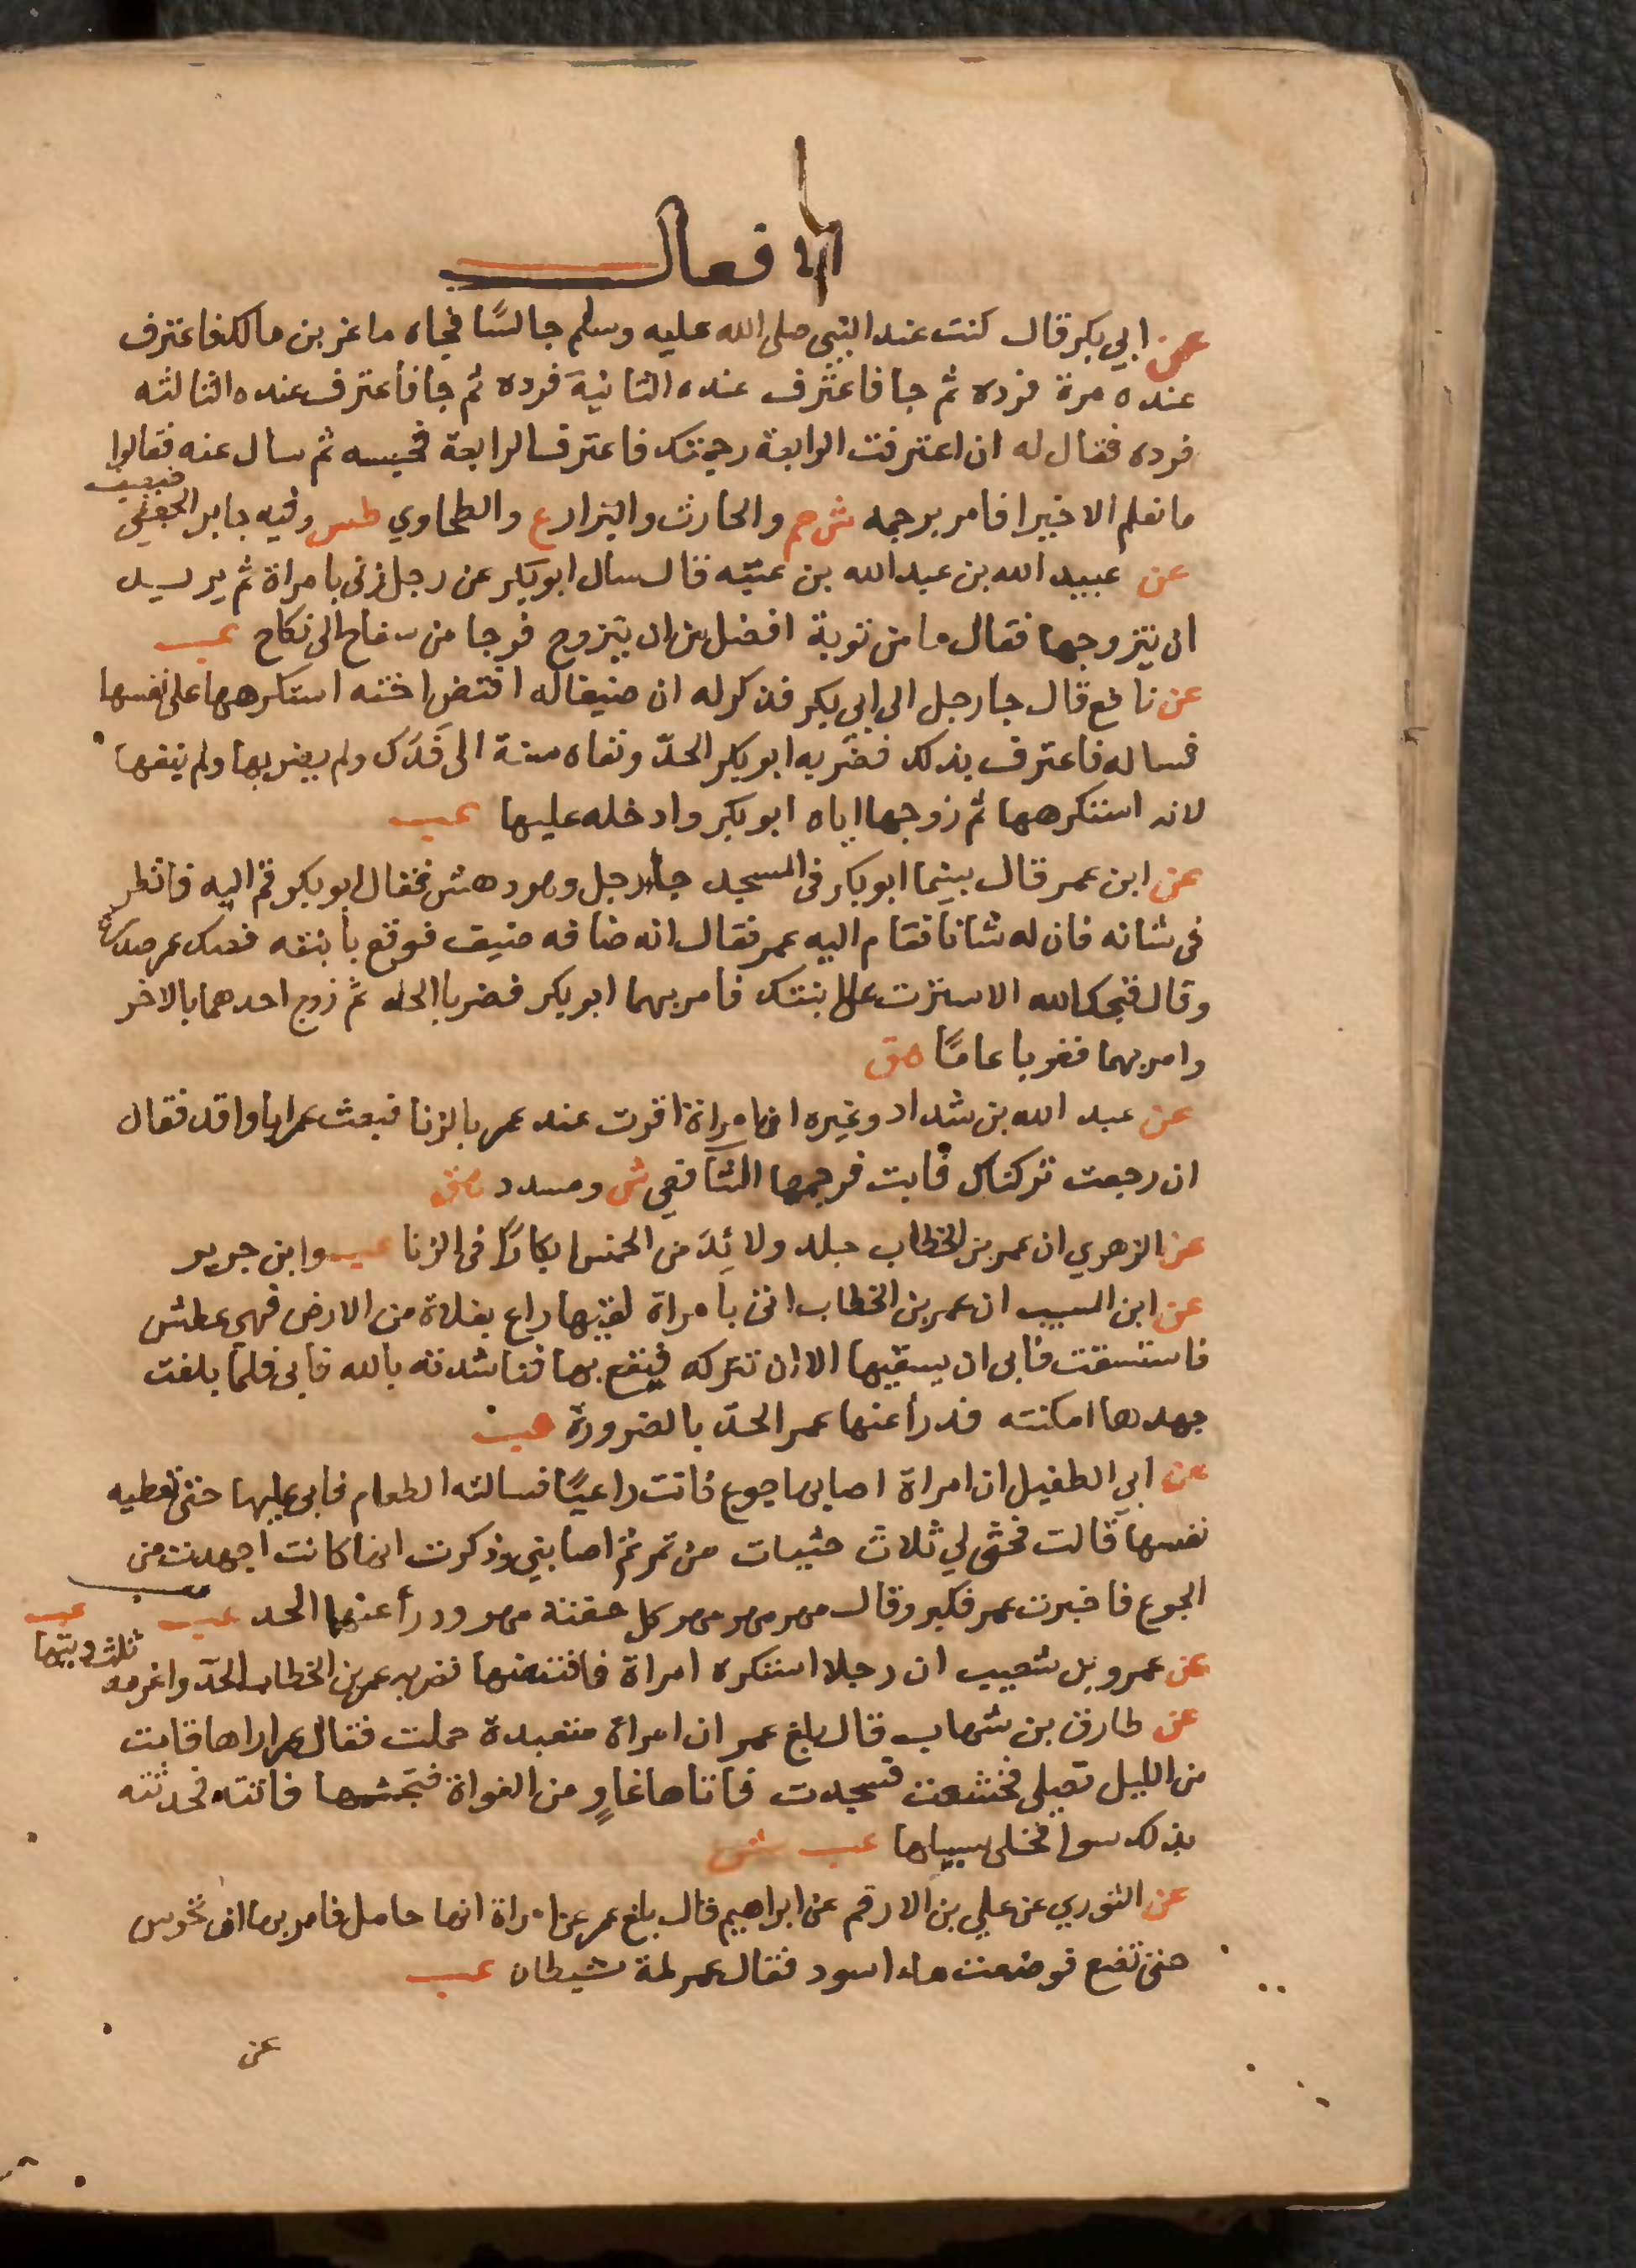 الافعال
عن ابي بكر قال كنت عند النبي صلى الله عليه وسلم جالسًا فجاه ماعز بن مالك فاعترف
عنده مرة فرده ثم جا فاعترف عنده الثانية فرده ثم جا فاعترف عنده الثالثه
فرده فقال له ان اعترفت الرابعة رجمتك فاعترف الرابعة فحبسه ثم سال عنه فقالوا
ما نعلم الا خيرا فامر برجمه ش حم والحارث والبزار ع والطحاوي طس وفيه جابر الجعفي
ضعيف
عن عبيد الله بن عبد الله بن عتبه قال سال ابو بكر عن رجل زنى بامراة ثم يريد
ان يتزوجها فقال ما من توبة افضل من ان يتزوج فوجا من سفاح الى نكاح عب
عن نافع قال جا رجل الى ابي بكر فذكر له ان ضيفا له افتض اخته استكرهها على نفسها
فساله فاعترف بذلك فضربه ابو بكر الحدّ ونفاه سنة الى فَدَك ولم يضربها ولم ينفها
لانه استكرهها ثم زوجها اياه ابو بكر وادخله عليها عب
عن ابن عمر قال بينما ابو بكر فى المسجد جا رجل وهو دهش فقال ابو بكر قم اليه فانظر
فى شانه فان له شانا فقام اليه عمر فقال انه ضافه ضيف فوقع بابنته فصك عمر صدره
وقال قبحك الله الا سترت على ابنتك فامر بهما ابو بكر فضربا الحد ثم زوج احدهما بالاخر
وامر بهما فغربا عامًا هق
عن عبد الله بن شداد وغيره ان امراة اقرت عند عمر بالزنا فبعث عمر ابا واقد فقال
ان رجعت تركناك فابت فرجمها الشافعي ش ومسدد هق
عن الزهري ان عمر بن الخطاب جلد ولائد من الخمس ابكارًا فى الزنا عب وابن جرير
عن ابن المسيب ان عمر بن الخطاب اتى بامراة لقيها راع بفلاة من الارض فهي عطش
فاستسقت فابى ان يسقيها الا ان تتركه فيقع بها فناشدته بالله فابى فلما بلغت
جهدها امكنته فدرأ عنها عمر الحدّ بالضرورة عب
عن ابي الطفيل ان امراة اصابها جوع فاتت راعيًا فسالته الطعام فابى عليها حتى تعطيه
نفسها قالت فحثى لي ثلاث حثيات من تمر ثم اصابني وذكرت انها كانت اجهدت من
الجوع فاخبرت عمر فكبر وقال مهر مهر مهر كل حفنة مهر ودرأ عنها الحد عب
عن عمرو بن شعيب ان رجلا استكره امراة فافتضها فضربه عمر بن الخطاب الحدّ واغرمه
ثلث ديتها عب
عن طارق بن شهاب قال بلغ عمر ان امراة متعبدة حملت فقال عمر اراها قامت
من الليل تصلي فخشعت فسجدت فاتاها غاوٍ من الغواة فتجشمها فاتته فحدثته
بذلك سوا فخلى سبيلها عب ش
عن الثوري عن علي بن الارقم عن ابراهيم قال بلغ عمر عن امراة انها حامل فامر بها ان تحرس
حتى تضع فوضعت ماء اسود فقال عمر لمة شيطان عب
عن